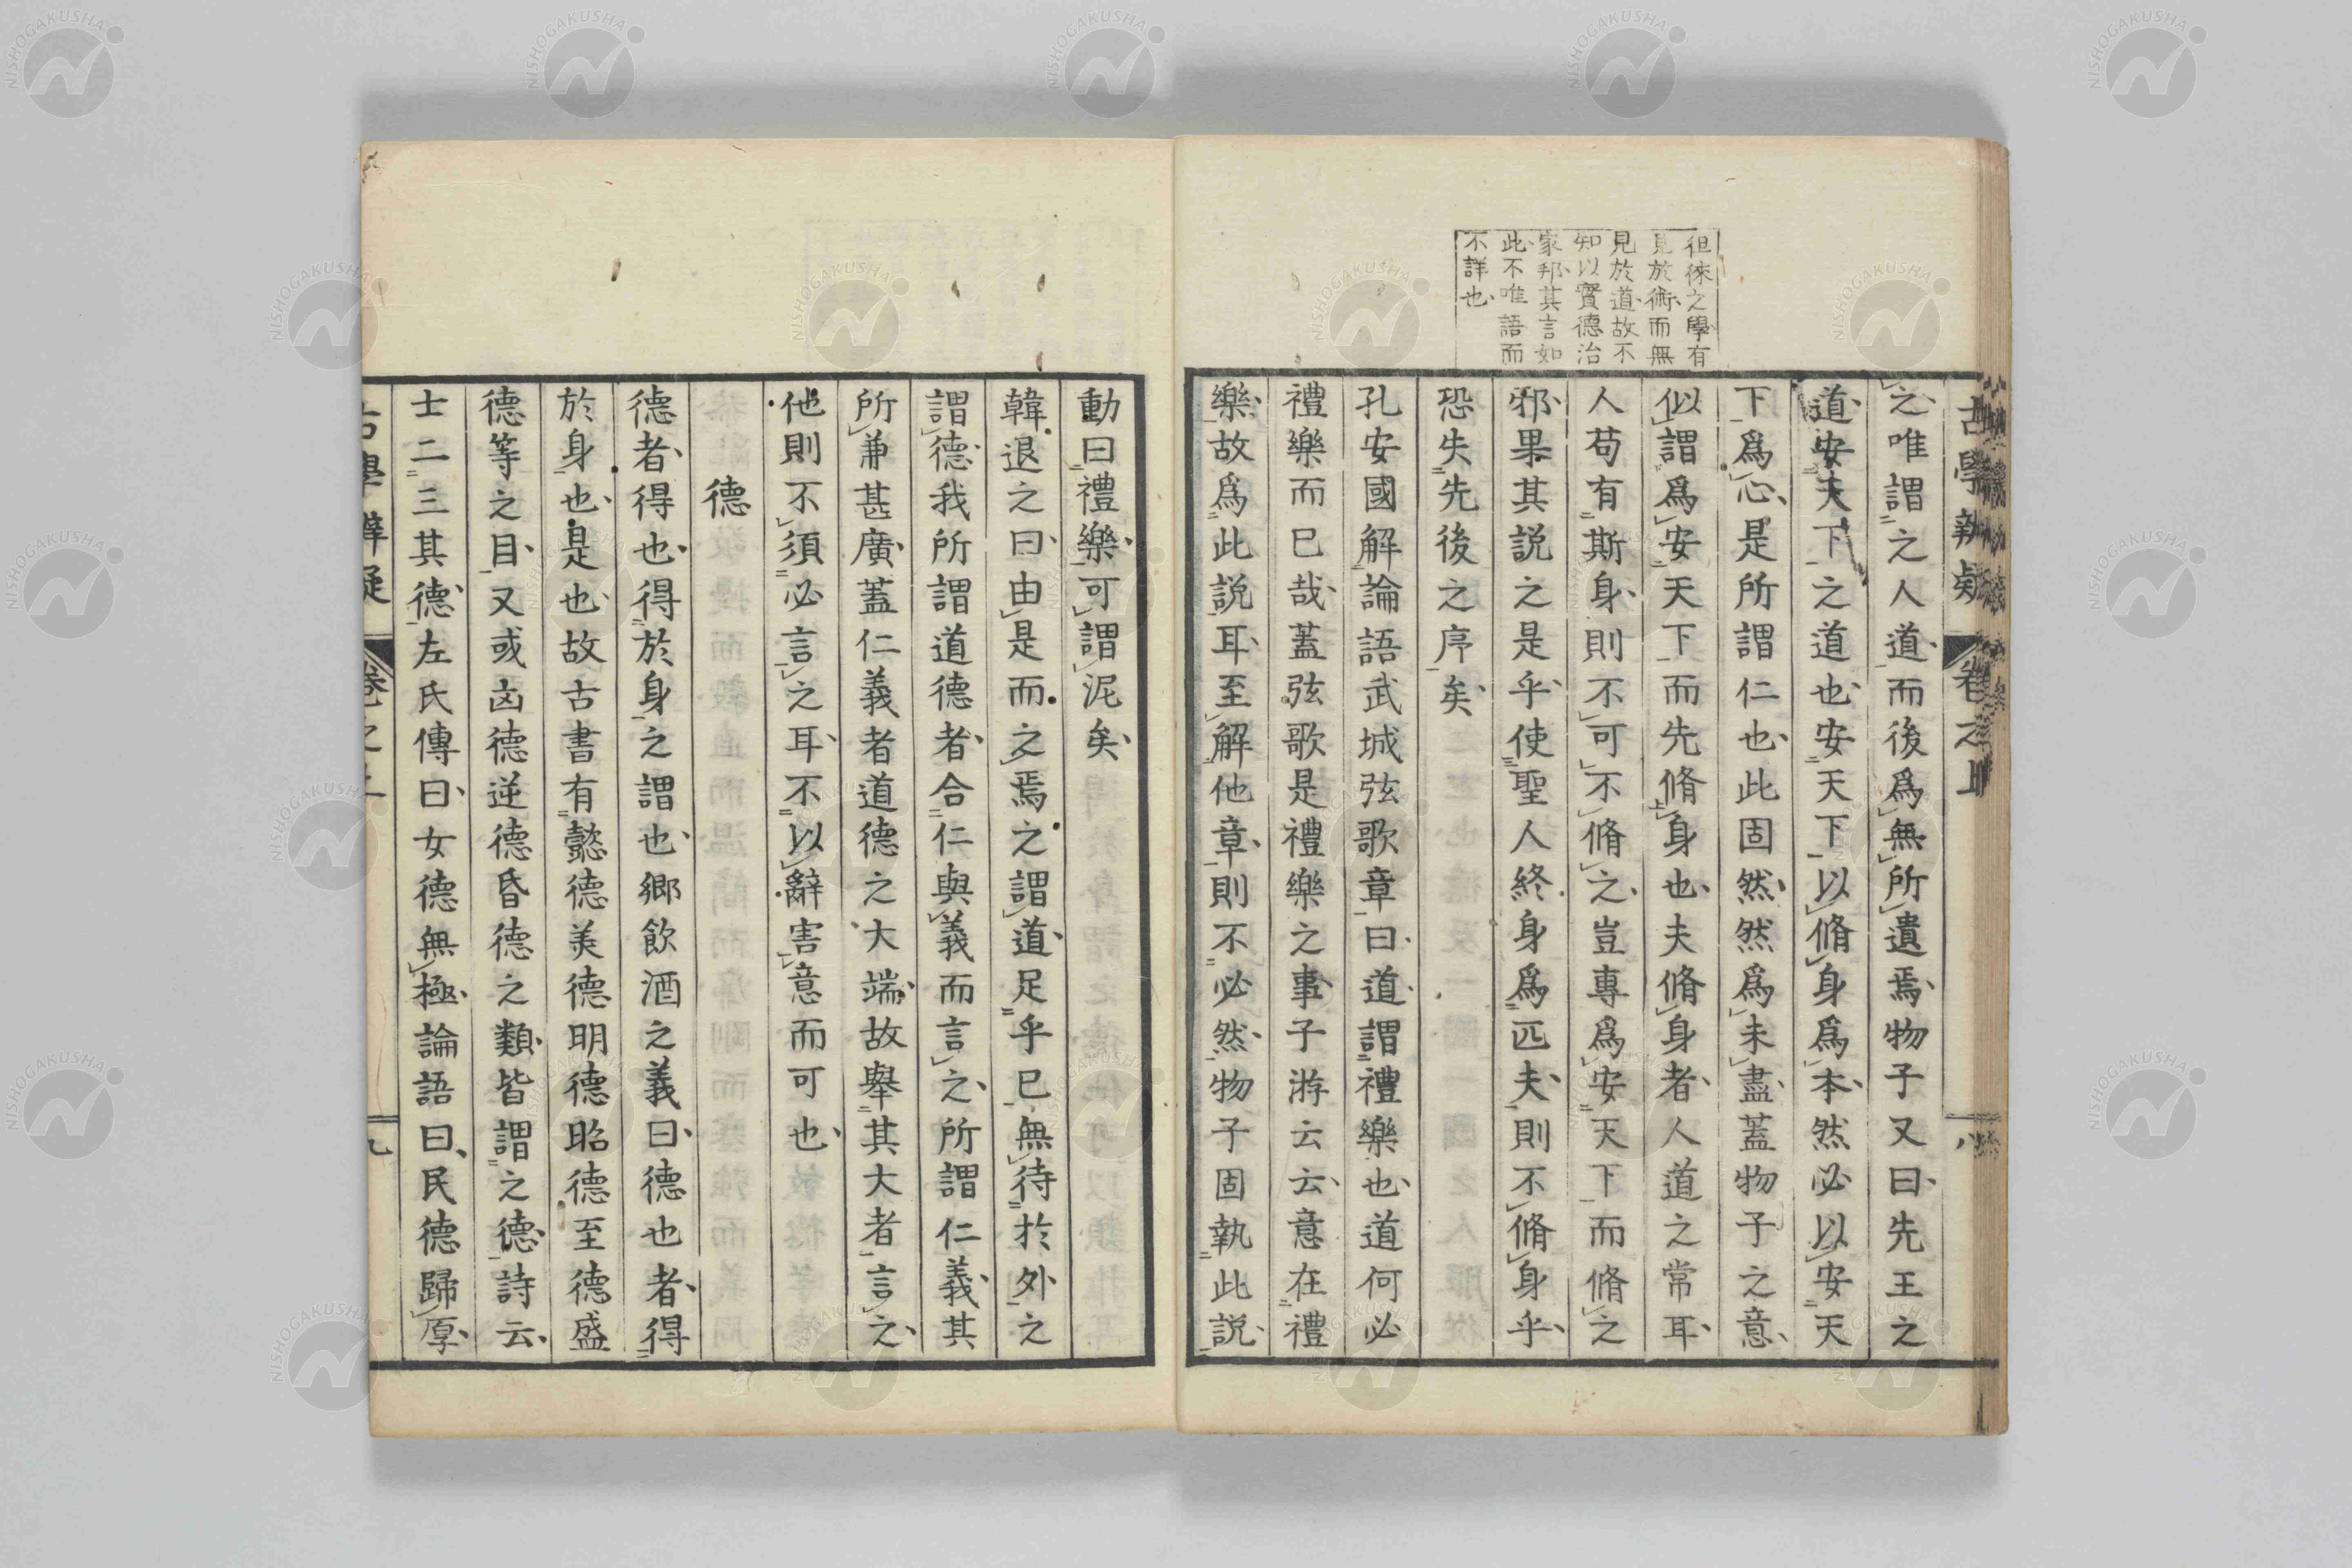 徂徠之學有
見於術而無
見於道故不
知以實德治
家邦其言如
此不唯語而
不詳也
古學辨疑 卷之上 八
之唯謂之人道而後爲無所遺焉物子又曰先王之
道安天下之道也安天下以脩身爲本然必以安天
下爲心是所謂仁也此固然然爲未盡蓋物子之意
似謂爲安天下而先脩身也夫脩身者人道之常耳
人苟有斯身則不可不脩之豈專爲安天下而脩之
邪果其説之是乎使聖人終身爲匹夫則不脩身乎
恐失先後之序矣
孔安國解論語武城弦歌章曰道謂禮樂也道何必
禮樂而已哉蓋弦歌是禮樂之事子游云云意在禮
樂故爲此説耳至解他章則不必然物子固執此説
動曰禮樂可謂泥矣
韓退之曰由是而之焉之謂道足乎已無待於外之
謂德我所謂道德者合仁與義而言之所謂仁義其
所兼甚廣蓋仁義者道德之大端故舉其大者言之
他則不須必言之耳不以辭害意而可也
德
德者得也得於身之謂也鄉飲酒之義曰德也者得
於身也是也故古書有懿德美德明德昭德至德盛
德等之目又或凶德逆德昏德之類皆謂之德詩云
士二三其德左氏傳曰女德無極論語曰民德歸厚
古學辨疑 卷之上 九
NISHOGAKUSHA